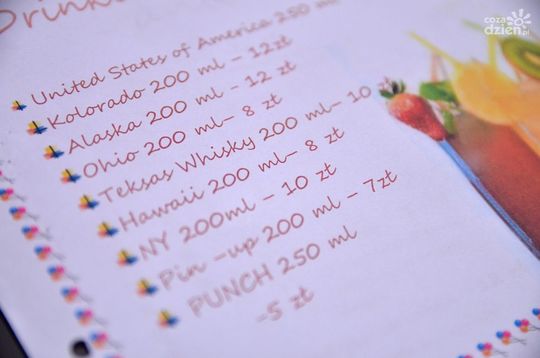 Drink
United States of America 250 ml
Kolorado 200 ml – 12zł
Alaska 200 ml – 12 zł
Ohio 200 ml– 8 zł
Teksas Whisky 200 ml– 10
Hawaii 200 ml– 8 zł
NY 200ml – 10 zł
Pin –up 200 ml – 7zł
PUNCH 250 ml
–5 zł
coza
dzień.pl